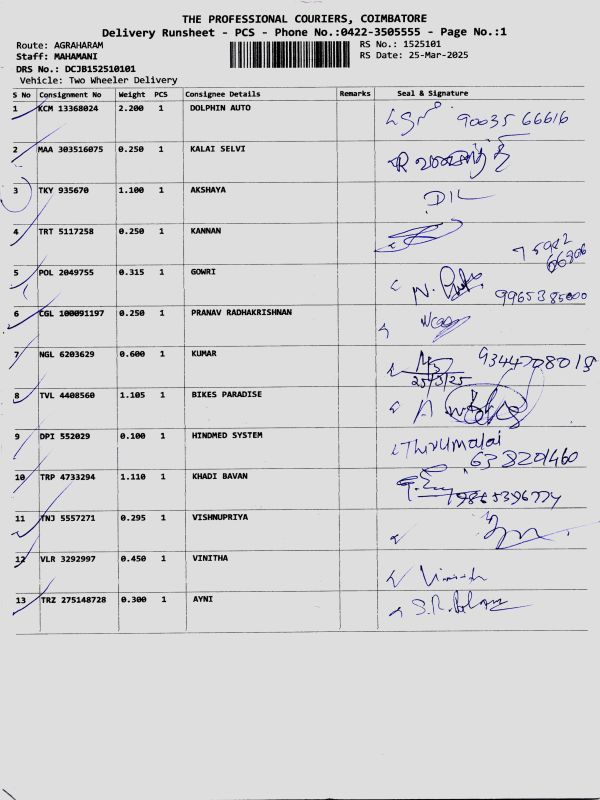 THE PROFESSIONAL COURIERS, COIMBATORE
Delivery Runsheet - PCS - Phone No.:0422-3505555 - Page No.:1
Route: AGRAHARAM RS No.: 1525101
Staff: MAHAMANI RS Date: 25-Mar-2025
DRS No.: DCJB152510101
Vehicle: Two Wheeler Delivery
S No Consignment No Weight PCS Consignee Details Remarks Seal & Signature
1 KCM 13368024 2.200 1 DOLPHIN AUTO 90035 66616
2 MAA 303516075 0.250 1 KALAI SELVI
3 TKY 935670 1.100 1 AKSHAYA DIL
4 TRT 5117258 0.250 1 KANNAN
5 POL 2049755 0.315 1 GOWRI
6 CGL 100091197 0.250 1 PRANAV RADHAKRISHNAN
7 NGL 6203629 0.600 1 KUMAR
25/3/25
8 TVL 4408560 1.105 1 BIKES PARADISE
9 DPI 552029 0.100 1 HINDMED SYSTEM Thirumalai
10 TRP 4733294 1.110 1 KHADI BAVAN
11 TNJ 5557271 0.295 1 VISHNUPRIYA
12 VLR 3292997 0.450 1 VINITHA
13 TRZ 275148728 0.300 1 AYNI